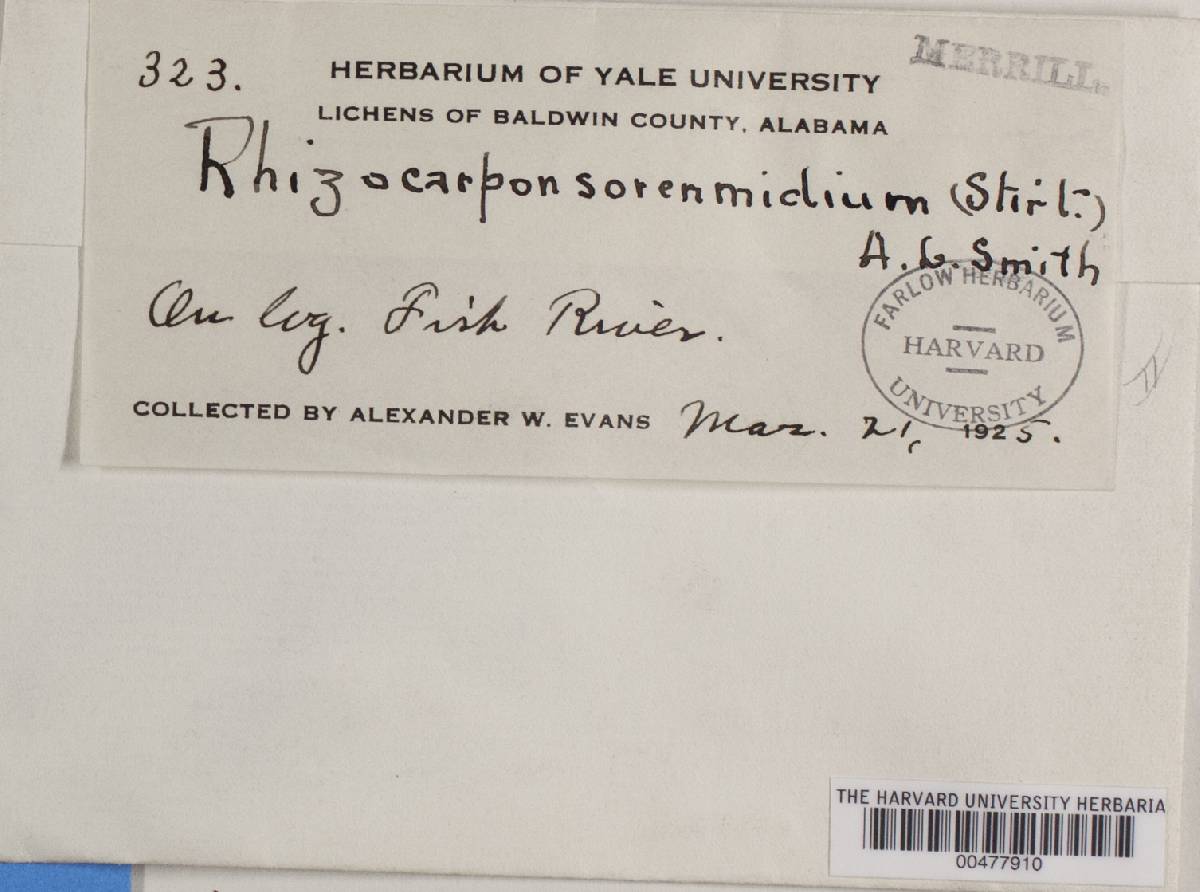 323.
HERBARIUM OF YALE UNIVERSITY
MERRILL.
LICHENS OF BALDWIN COUNTY, ALABAMA
Rhizocarpon sorenmidium (Stirt.)
A. L. Smith
On log. Fish River.
FARLOW HERBARIUM
HARVARD
UNIVERSITY
COLLECTED BY ALEXANDER W. EVANS Mar. 21, 1925.
THE HARVARD UNIVERSITY HERBARIA
00477910